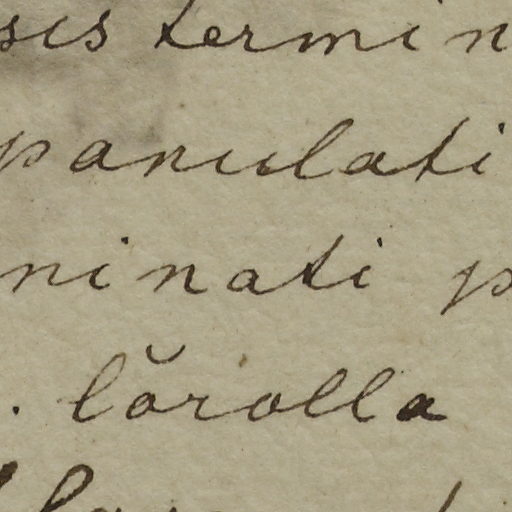 sis termin
panulati
ninati p
. lŏrolla